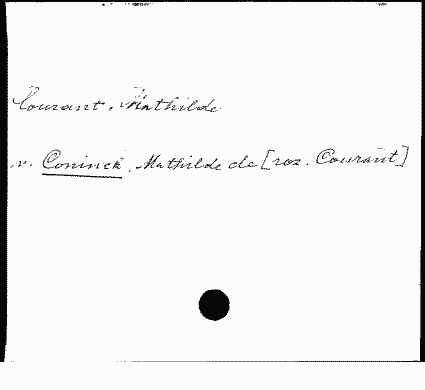 Courant, Mathilde
v. Coninck, Mathilde de [roz. Courant]